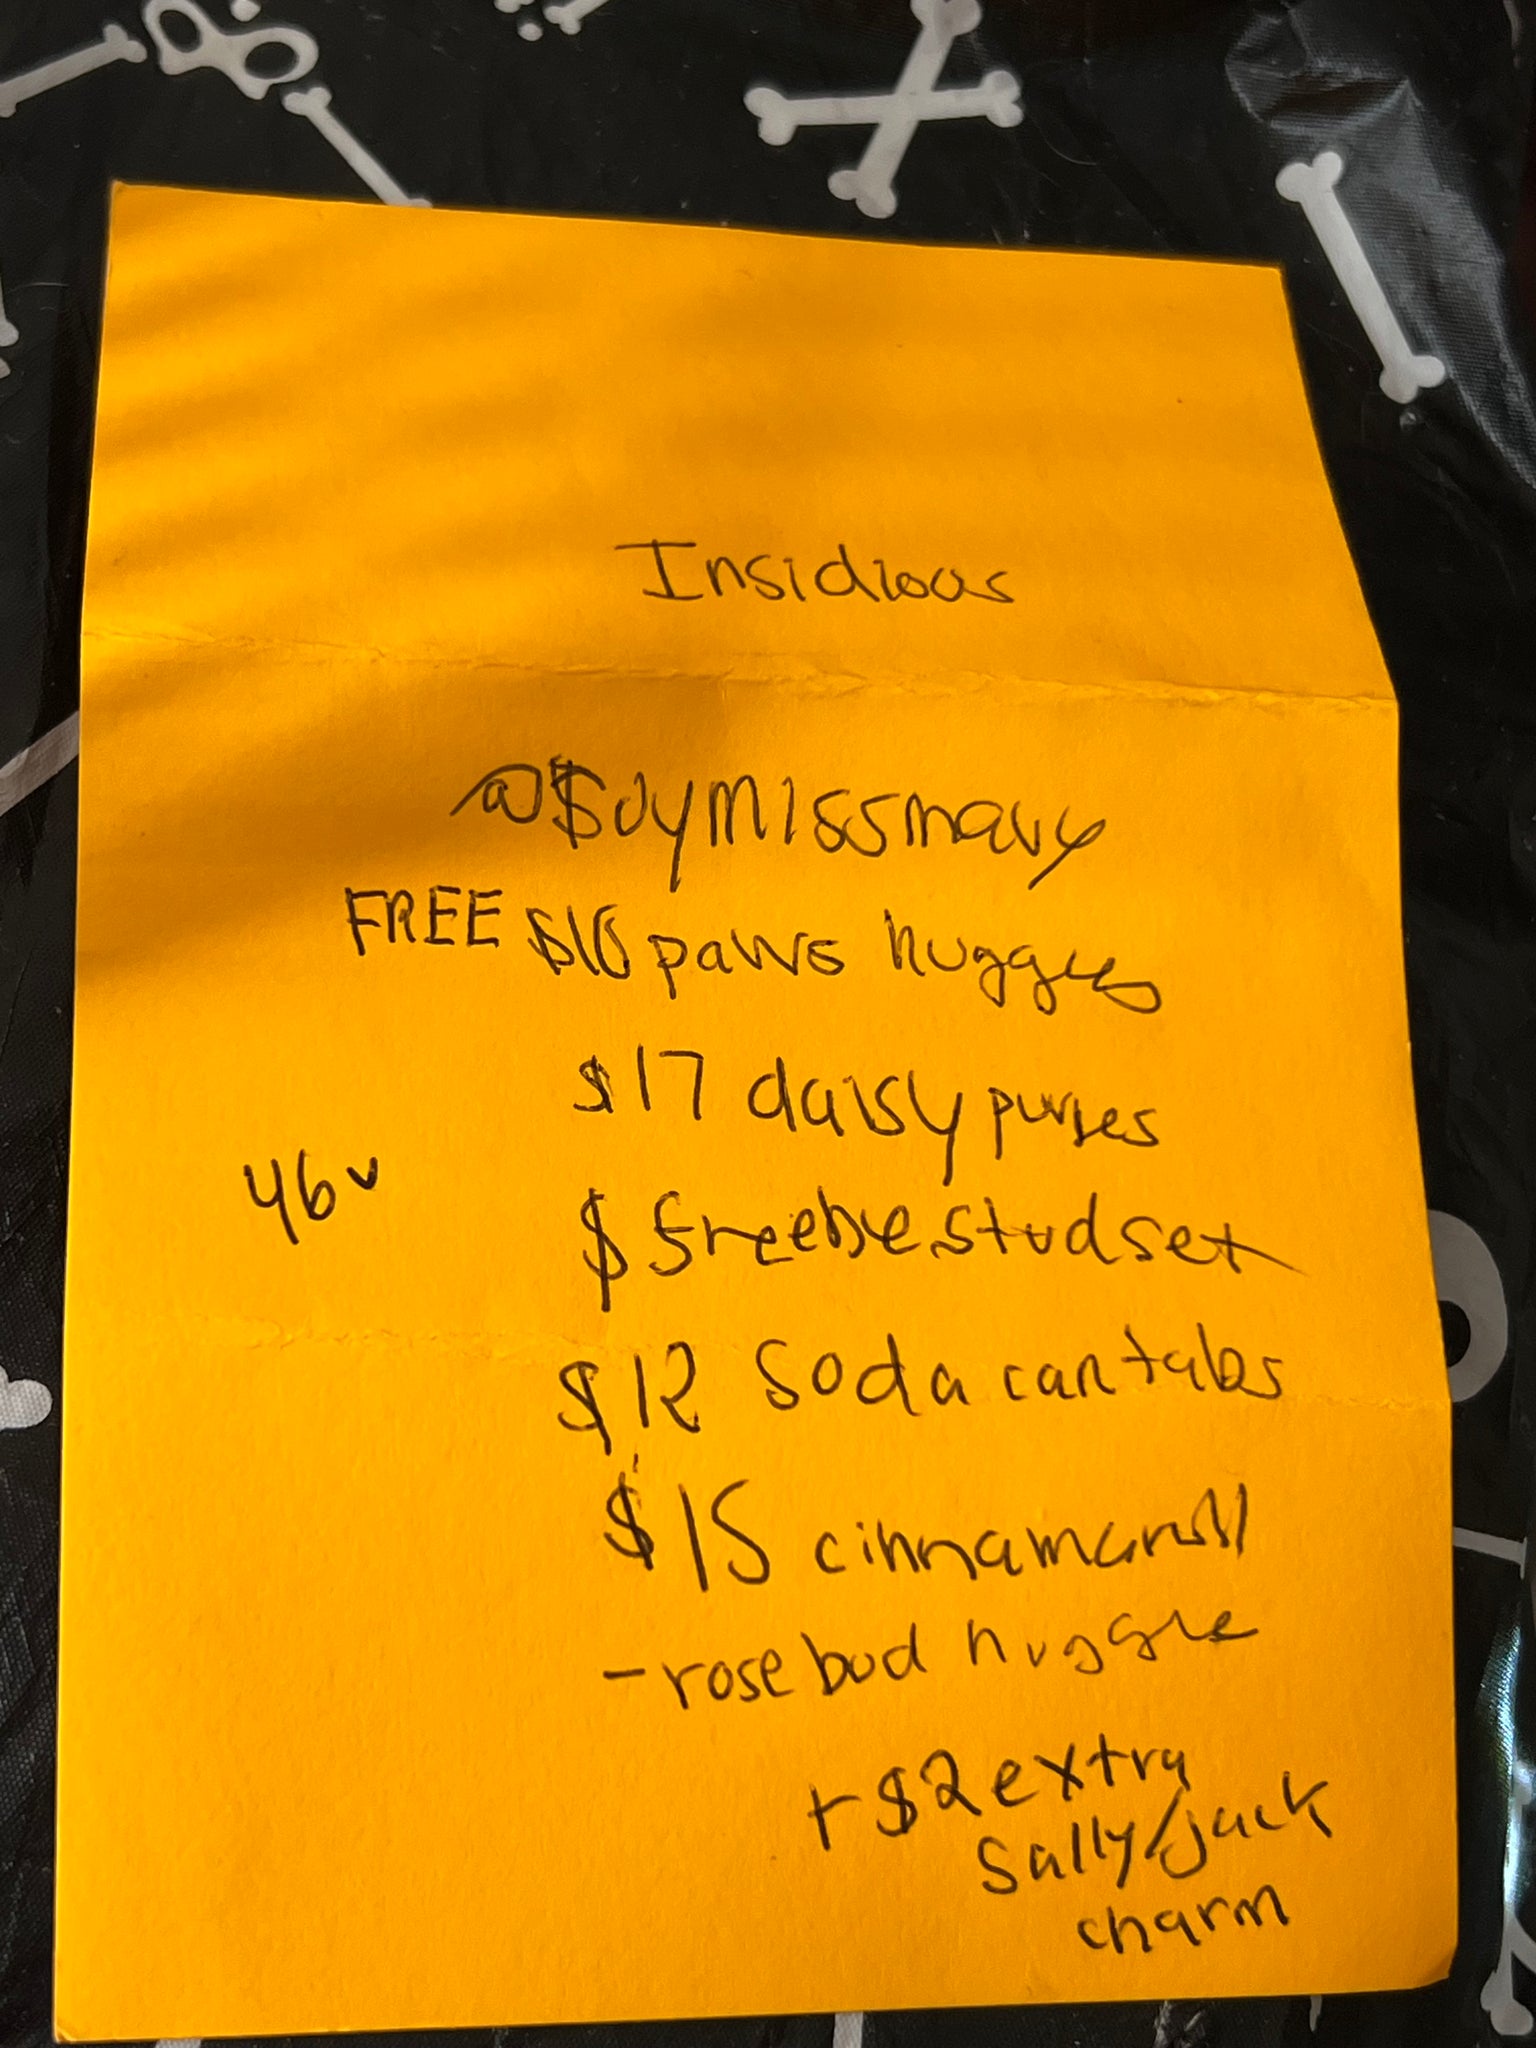 Insidious
@$oymissmavy
FREE $10 paws huggies
$17 daisy purses
46
$ freebie stud set
$12 Soda can tabs
$15 cinnamonroll
- rose bud huggie
+ $2 extra
Sally/jack
charm